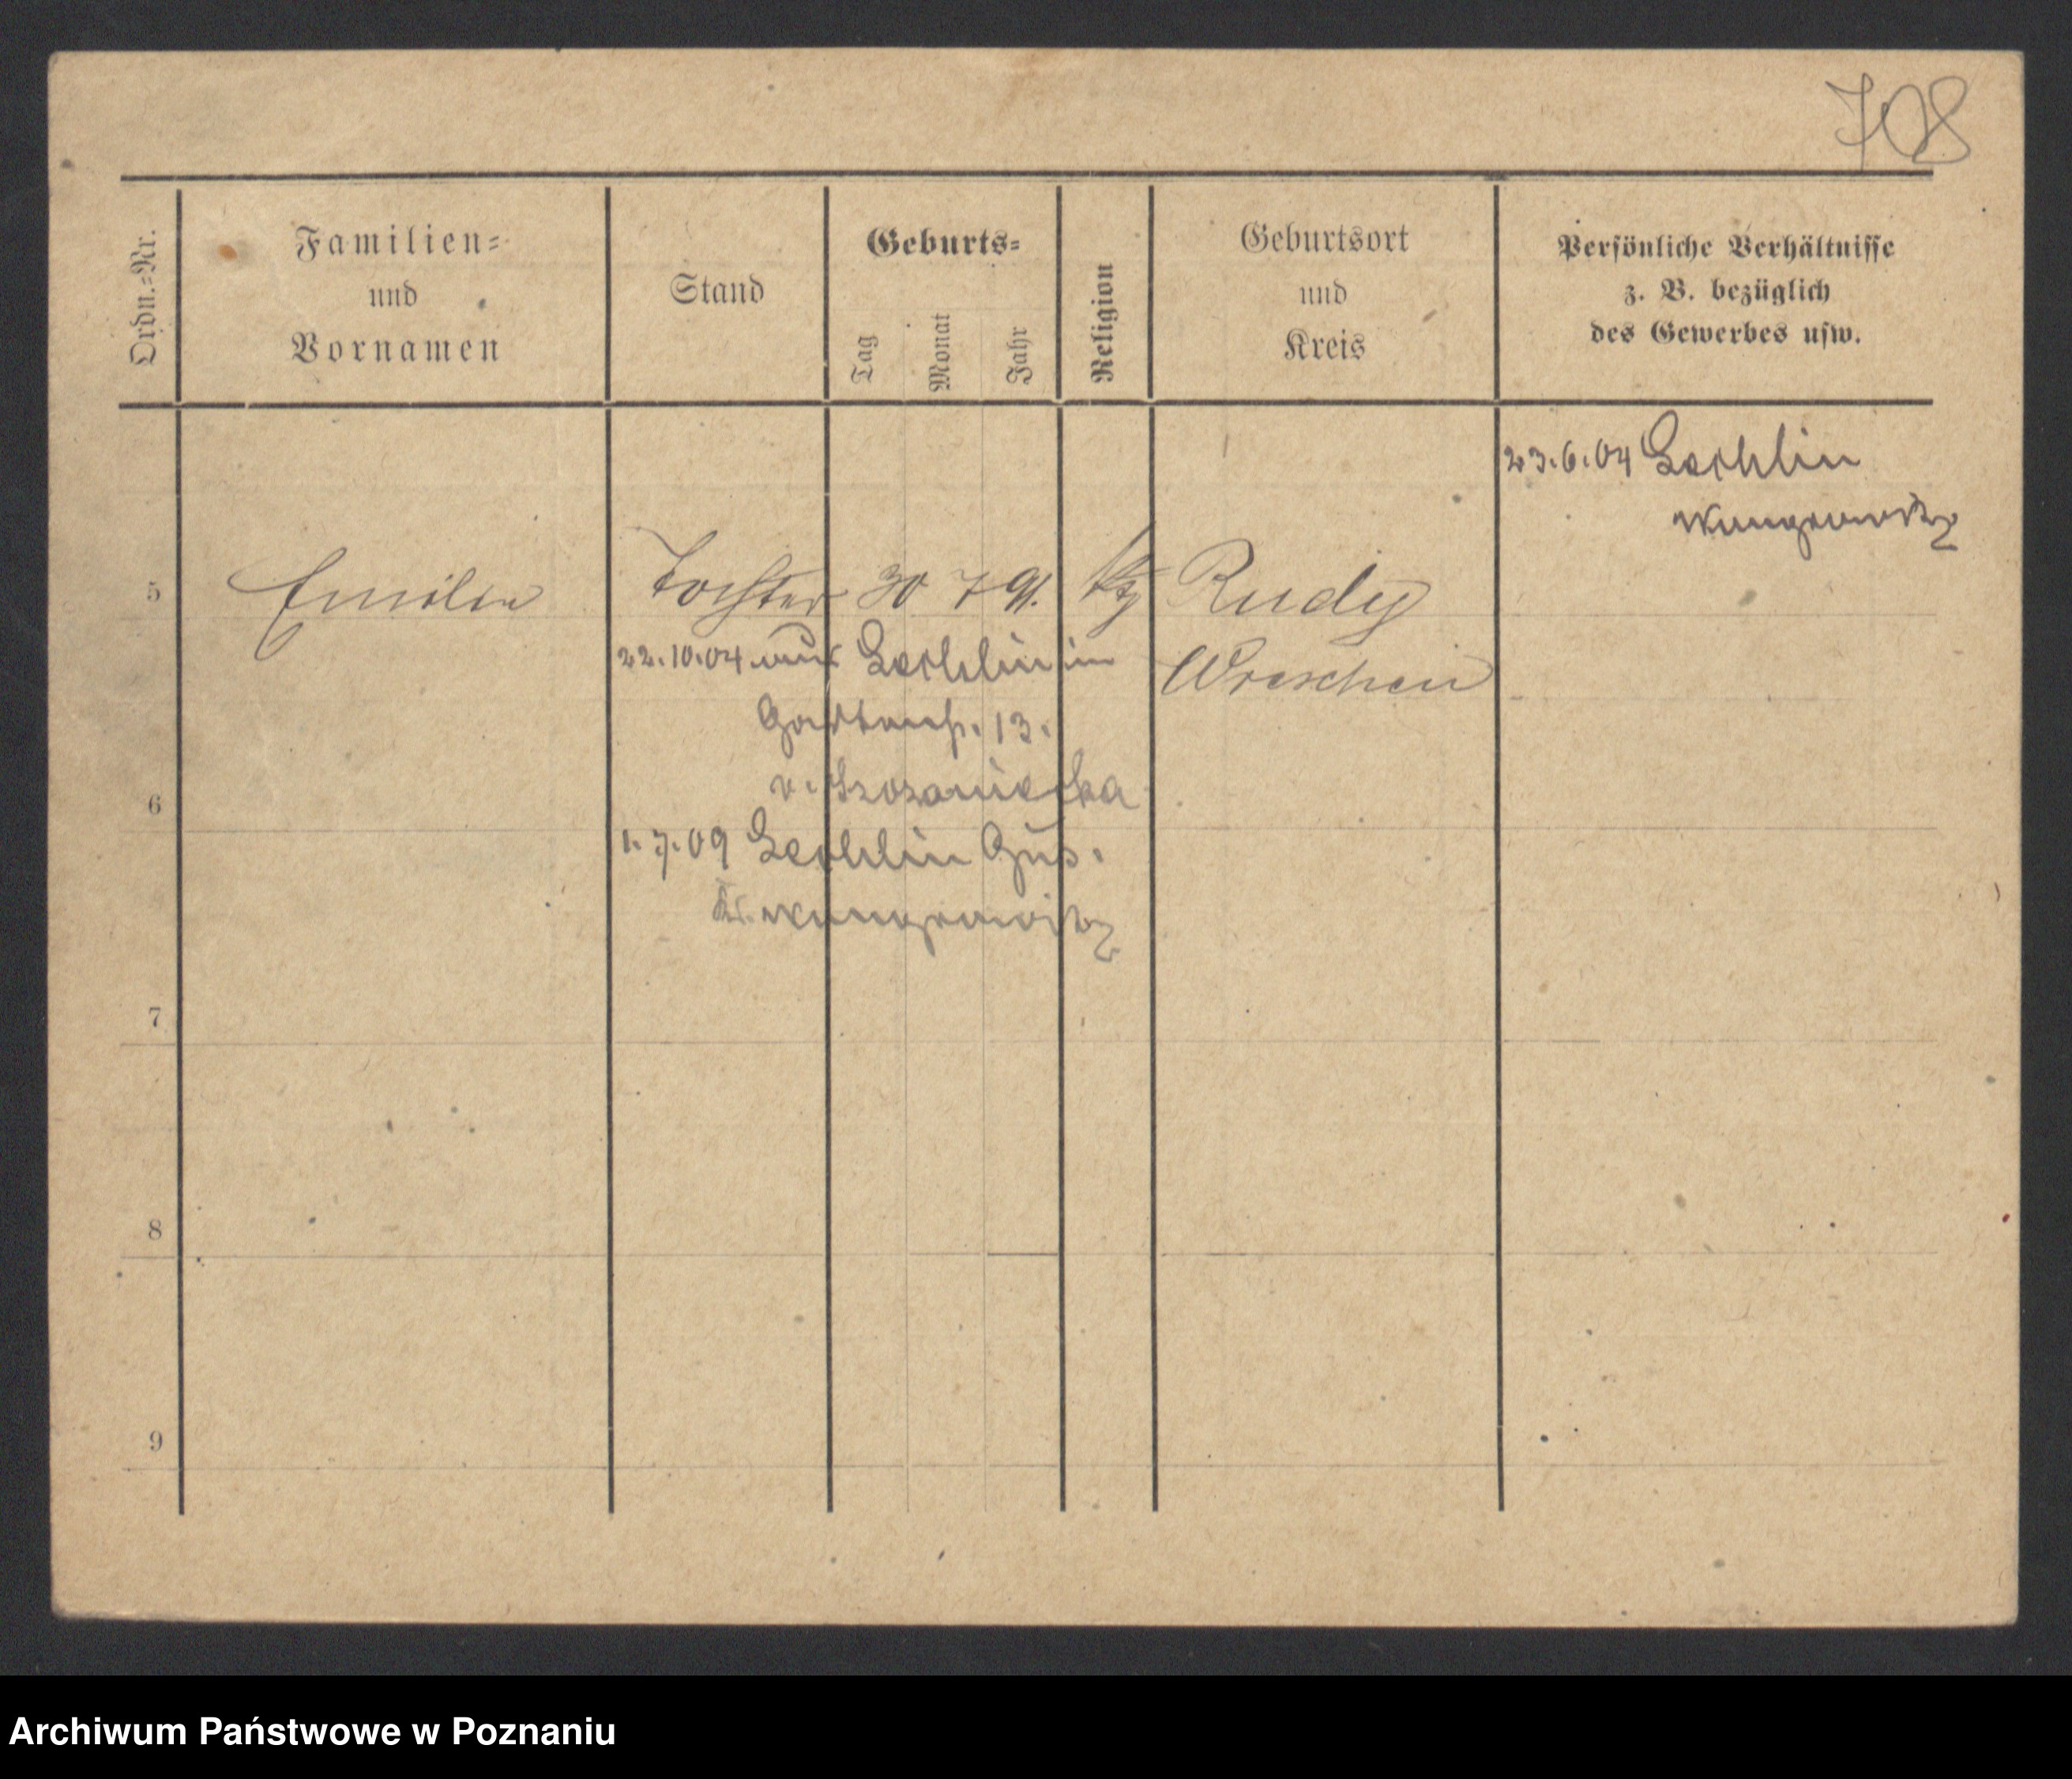 708
Ordn.=Nr.
Familien=
und
Vornamen
Stand
Geburts=
Tag
Monat
Jahr
Religion
Geburtsort
und
Kreis
Persönliche Verhältnisse
z. B. bezüglich
des Gewerbes usw.
23.6.04 Lechlin
Wongrowitz
5 Emilie Tochter 30 7 91. ktz Rudy
22.10.04 aus Lechlin in Wreschen
13.
v.
6
1.7.09 Lechlin Gut.
Kr. Wongrowitz
7
8
9
Archiwum Państwowe w Poznaniu